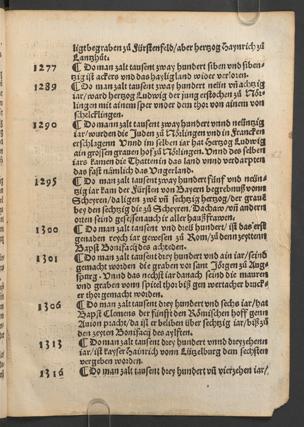 ligt begraben zů Fürstenfeld/aber hertzog Haynrich zů
Lantzhůt.
1277 ¶ Do man zalt tausent zway hundert siben vnd siben-
tzig ist ackers vnd das haylig land wider verloren.
1289 ¶ Do man zalt tausent zway hundert neün vñ achtzig
iar/ward hertzog Ludwig der jung erstochen zů Nör-
lingen mit ainem sper vnder dem thor von ainem von
schelcklingen.
1290 ¶ Do man zalt tausent zway hundert vnnd neüntzig
iar/wurden die Juden zů Nörlingen vnd in Francken
erschlagenn Vnnd im selben iar hat Hertzog Ludwig
ain grossen grauen hof zů Nörlingen. Vnnd des selben
iars kamen die Thatten in das lannd vnnd verdarpten
das fast nämlich das Vngerland.
1295 ¶ Do man zalt tausent zway hundert fünf vnd neün-
tzig iar kam der Fürsten von Bayern begrebnuß vonn
Scheyren/da ligen zwē vñ sechtzig hertzog/der graue
bey den sechtzig die zů Scheyren/Dachaw/vñ andern
orten seind gesessen auch ir aller haußfrawen.
1300 ¶ Do man zalt tausent vnd dreiß hundert/ist das erst
genaden reych iar gewesen zů Rom/zů denn zeytten
Bapst Bonifacij des achteden.
1301 ¶ Do man zalt tausent drey hundert vnd ain iar/seind
gemacht worden die graben vor sant Jörgen zů Aug
spurg. Vnnd das nechst iar darnach seind die mauren
vnd graben vonn spital thor biß gen wertacher bruck-
er thor gemacht worden.
1306 ¶ Do man zalt tausent drey hundert vnd sechs iar/hat
Bapst Clemens der fünfft den Römischen hoff genn
Auion pracht/da ist er beliben über sechtzig iar/biß zů
den zeyten Bonifacij des aylfften.
1313 ¶ Do man zalt tausent drey hundert vnnd dreyzehenn
iar/ist kayser Hainrich vonn Lützelburg dem sechsten
vergeben worden.
1316 ¶ Do man zalt tausent drey hundert vñ vierzehen iar/